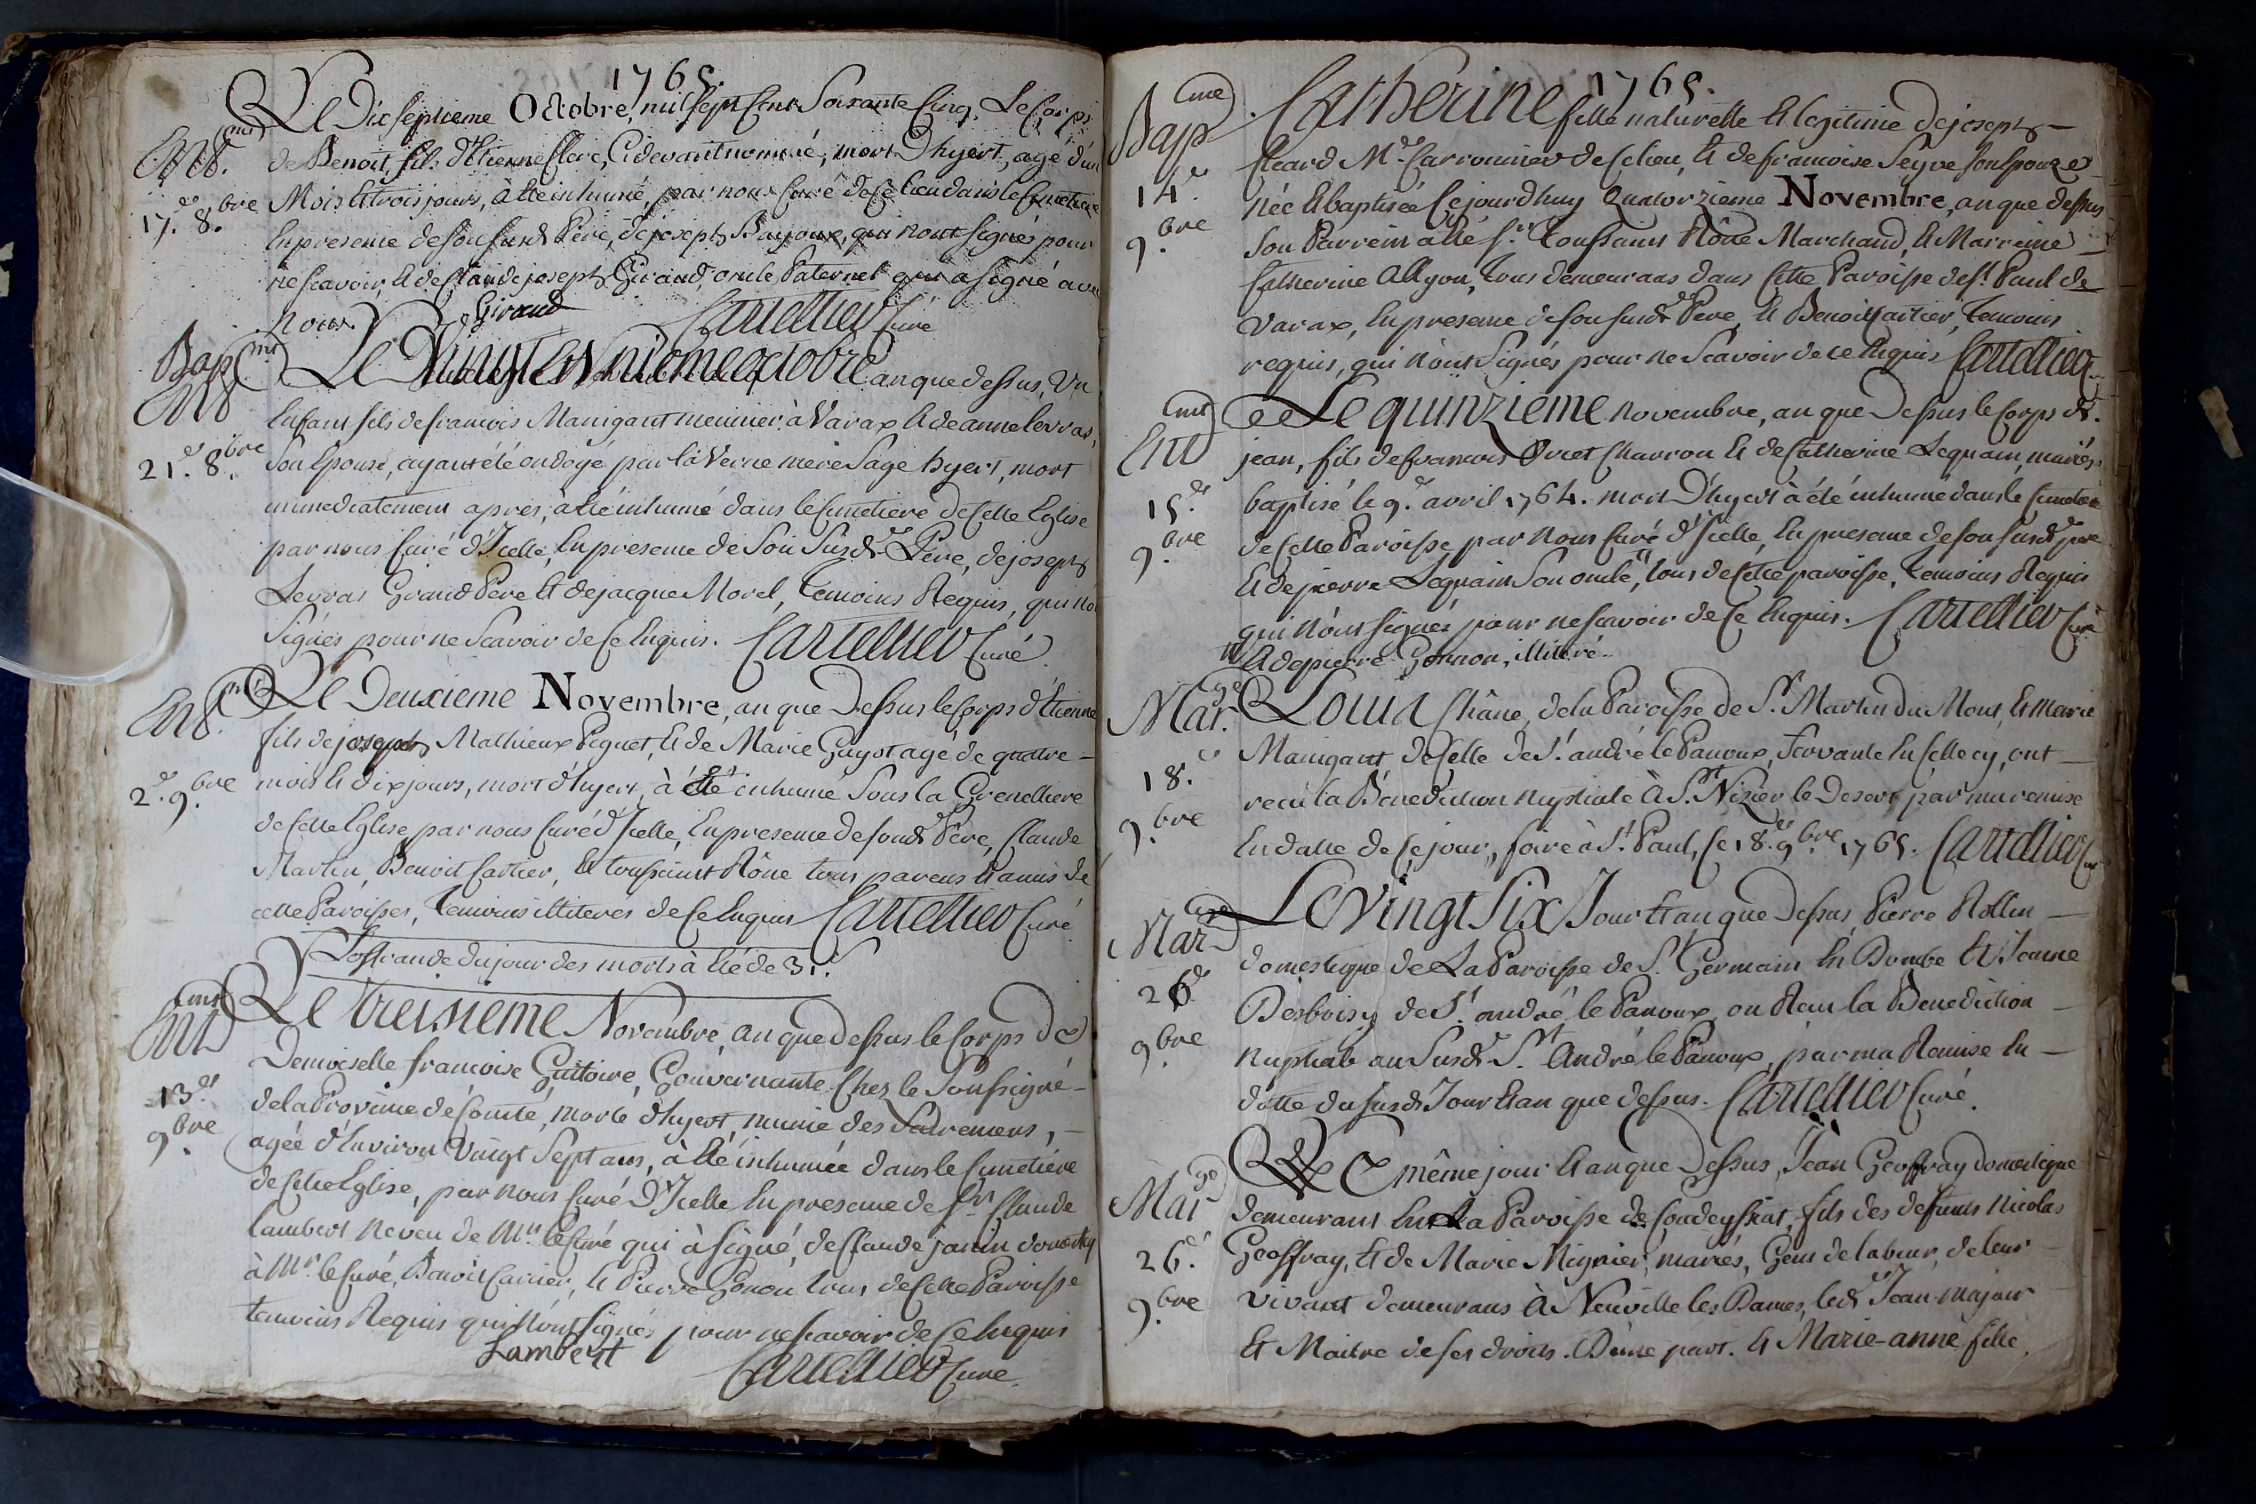 1765.
Le Dix septieme Octobre, mil sept Cent Soixante Cinq, Le Corps
Ent.mt
de Benoit, fils d'Etienne Clerc, Cidevant nommé, mort D'hyert, agé d'un
17.e 8.bre
Mois et trois jours, à été inhumé, par nous Curé de Ce lieu dans le Cimetiere
En presence de son susd. Pere, de joseph Bajoux, qui n'ont signés pour
ne scavoir, et de Claude joseph Giraud, oncle Paternel qui a signé avec
Nous. Giraud Cartellier Curé
Bap.mt
Ent
Le Vingt et Unieme octobre an que dessus, Un
Enfant fils de francois Manigant meunier à Varax et de anne Levras,
21.e 8.bre
Son Epouse, ayant été ondoyé par la Verne mere Sage hyert, mort
immediatement apres, à été inhumé dans le Cimetiere de Cette Eglise
par nous Curé d'Icelle, En presence de Son Susd. Pere, de joseph
Levras Grand Pere et de jacque Morel, Temoins Requis, qui n'o
Signés pour ne Scavoir de Ce Enquis. Cartellier Curé.
Ent.mt
Le Deuxieme Novembre, an que Dessus le Corps d'Etienne
fils de joseph Mathieux Piquet, et de Marie Guyot agé de quatre
2.e 9.bre
mois et dix jours, mort d'hyert, à été inhumé Sous la Grenelliere
de Cette Eglise par nous Curé d'Icelle, En presence de sond. Pere, Claude
Martin, Benoit Cartier, et toussaint Rône tous parens et amis de
cette Paroisses, Temoins illiteres de Ce Enquis Cartellier Curé
L'offrande du jour des morts à été de 3
Ent.mt
Le treisieme Novembre, an que Dessus le Corps de
Demoiselle francoise Guttoire, Gouvernante Chez le Soussigné
13.e
de la Province de Comté, morte d'hyert, munie des Sacremens,
9.bre
agée d'Environ Vingt Sept ans, à été inhumée dans le Cimetiére
de Cette Eglise, par nous Curé D'Icelle En presence de Sr. Claude
Lambert Neveu de Mr. le Curé qui à signé, de Claude janin domestiq
à Mr. le Curé, Benoit Cartier, et Pierre Gonon tous de Cette Paroisse
temoins Requis qui N'ont Signés pour ne scavoir de Ce Enquis
Lambert
Cartellier Curé.
1765.
Bap
Catherine fille naturelle et legitime de joseph
Cleard Md. Carronnier de Ce lieu, et de francoise Seyve son Epouze
14.e
née et baptisée Cejourdhuy Quatorzieme Novembre, an que dessus
9.bre
Son Parrein a été sr. Toussaint Rône Marchand, et Marreine
Catherine Allyon, tous demeurans dans Cette Paroisse de St. Paul de
Varax, En presence de son susd. Pere, et Benoit Cartier, Temoins
requis, qui N'ont Signés pour ne Scavoir de ce Enquis Cartellier
Ent.mt
Le quinzieme Novembre, an que Dessus le Corps de
jean, fils de francois Ovret Charron et de Catherine Lequain, mariés
15.e
baptisé le 9.e avril 1764. mort D'hyert à été inhumé dans le Cimetiere
9.bre
de Cette Paroisse par Nous Curé d'Icelle, En presence de son susd. pere
et de pierre Lequain Son oncle, tous de Cette paroisse, Temoins Requis
qui N'ont signés pour ne scavoir de Ce Enquis. Cartellier Curé
et de pierre Gonnon, illitéré.
Mar.ge
Louis Châne, de la Paroisse de St. Martin du Mont, et Marie
Manigant de Celle de St. andré le Panoux, Servante En Celle cy, ont
18.e
recu la Bénediction nuptiale à St. Nizier le Desert, par ma remise
9.bre
En datte de Ce jour, faire à St. Paul, Ce 18.e 9.bre 1765. Cartellier Cu
Mar
Le Vingt Six Jour et an que Dessus, Pierre Rollin
domestique de La Paroisse de St. Germain En Dombe et Jeanne
26.e
Desboisy de St. andré le Panoux, on Recu la Benediction
9.bre
nuptiale au Susd. St. André le Panoux, par ma Remise En
datte du susd. Jour et an que dessus. Cartellier Curé.
Mar.ge
Le même jour et an que Dessus, Jean Geoffray domestique
demeurant En La Paroisse de Condeyssiat, fils des defunts Nicolas
26.e
Geoffray, et de Marie Mignier, mariés, Gens de labeur, de leur
9.bre
vivant demeurans à Neuville les Dames, led. Jean majeur
et Maitre de ses droits. D'une part. et Marie-anne fille